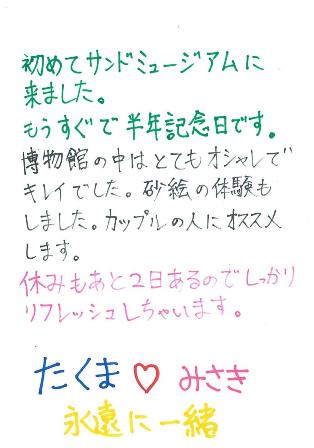 初めてサンドミュージアムに
来ました。
もうすぐで半年記念日です。
博物館の中はとてもオシャレで
キレイでした。砂絵の体験も
しました。カップルの人にオススメ
します。
休みもあと2日あるのでしっかり
リフレッシュしちゃいます。
たくま♡みさき
永遠に一緒